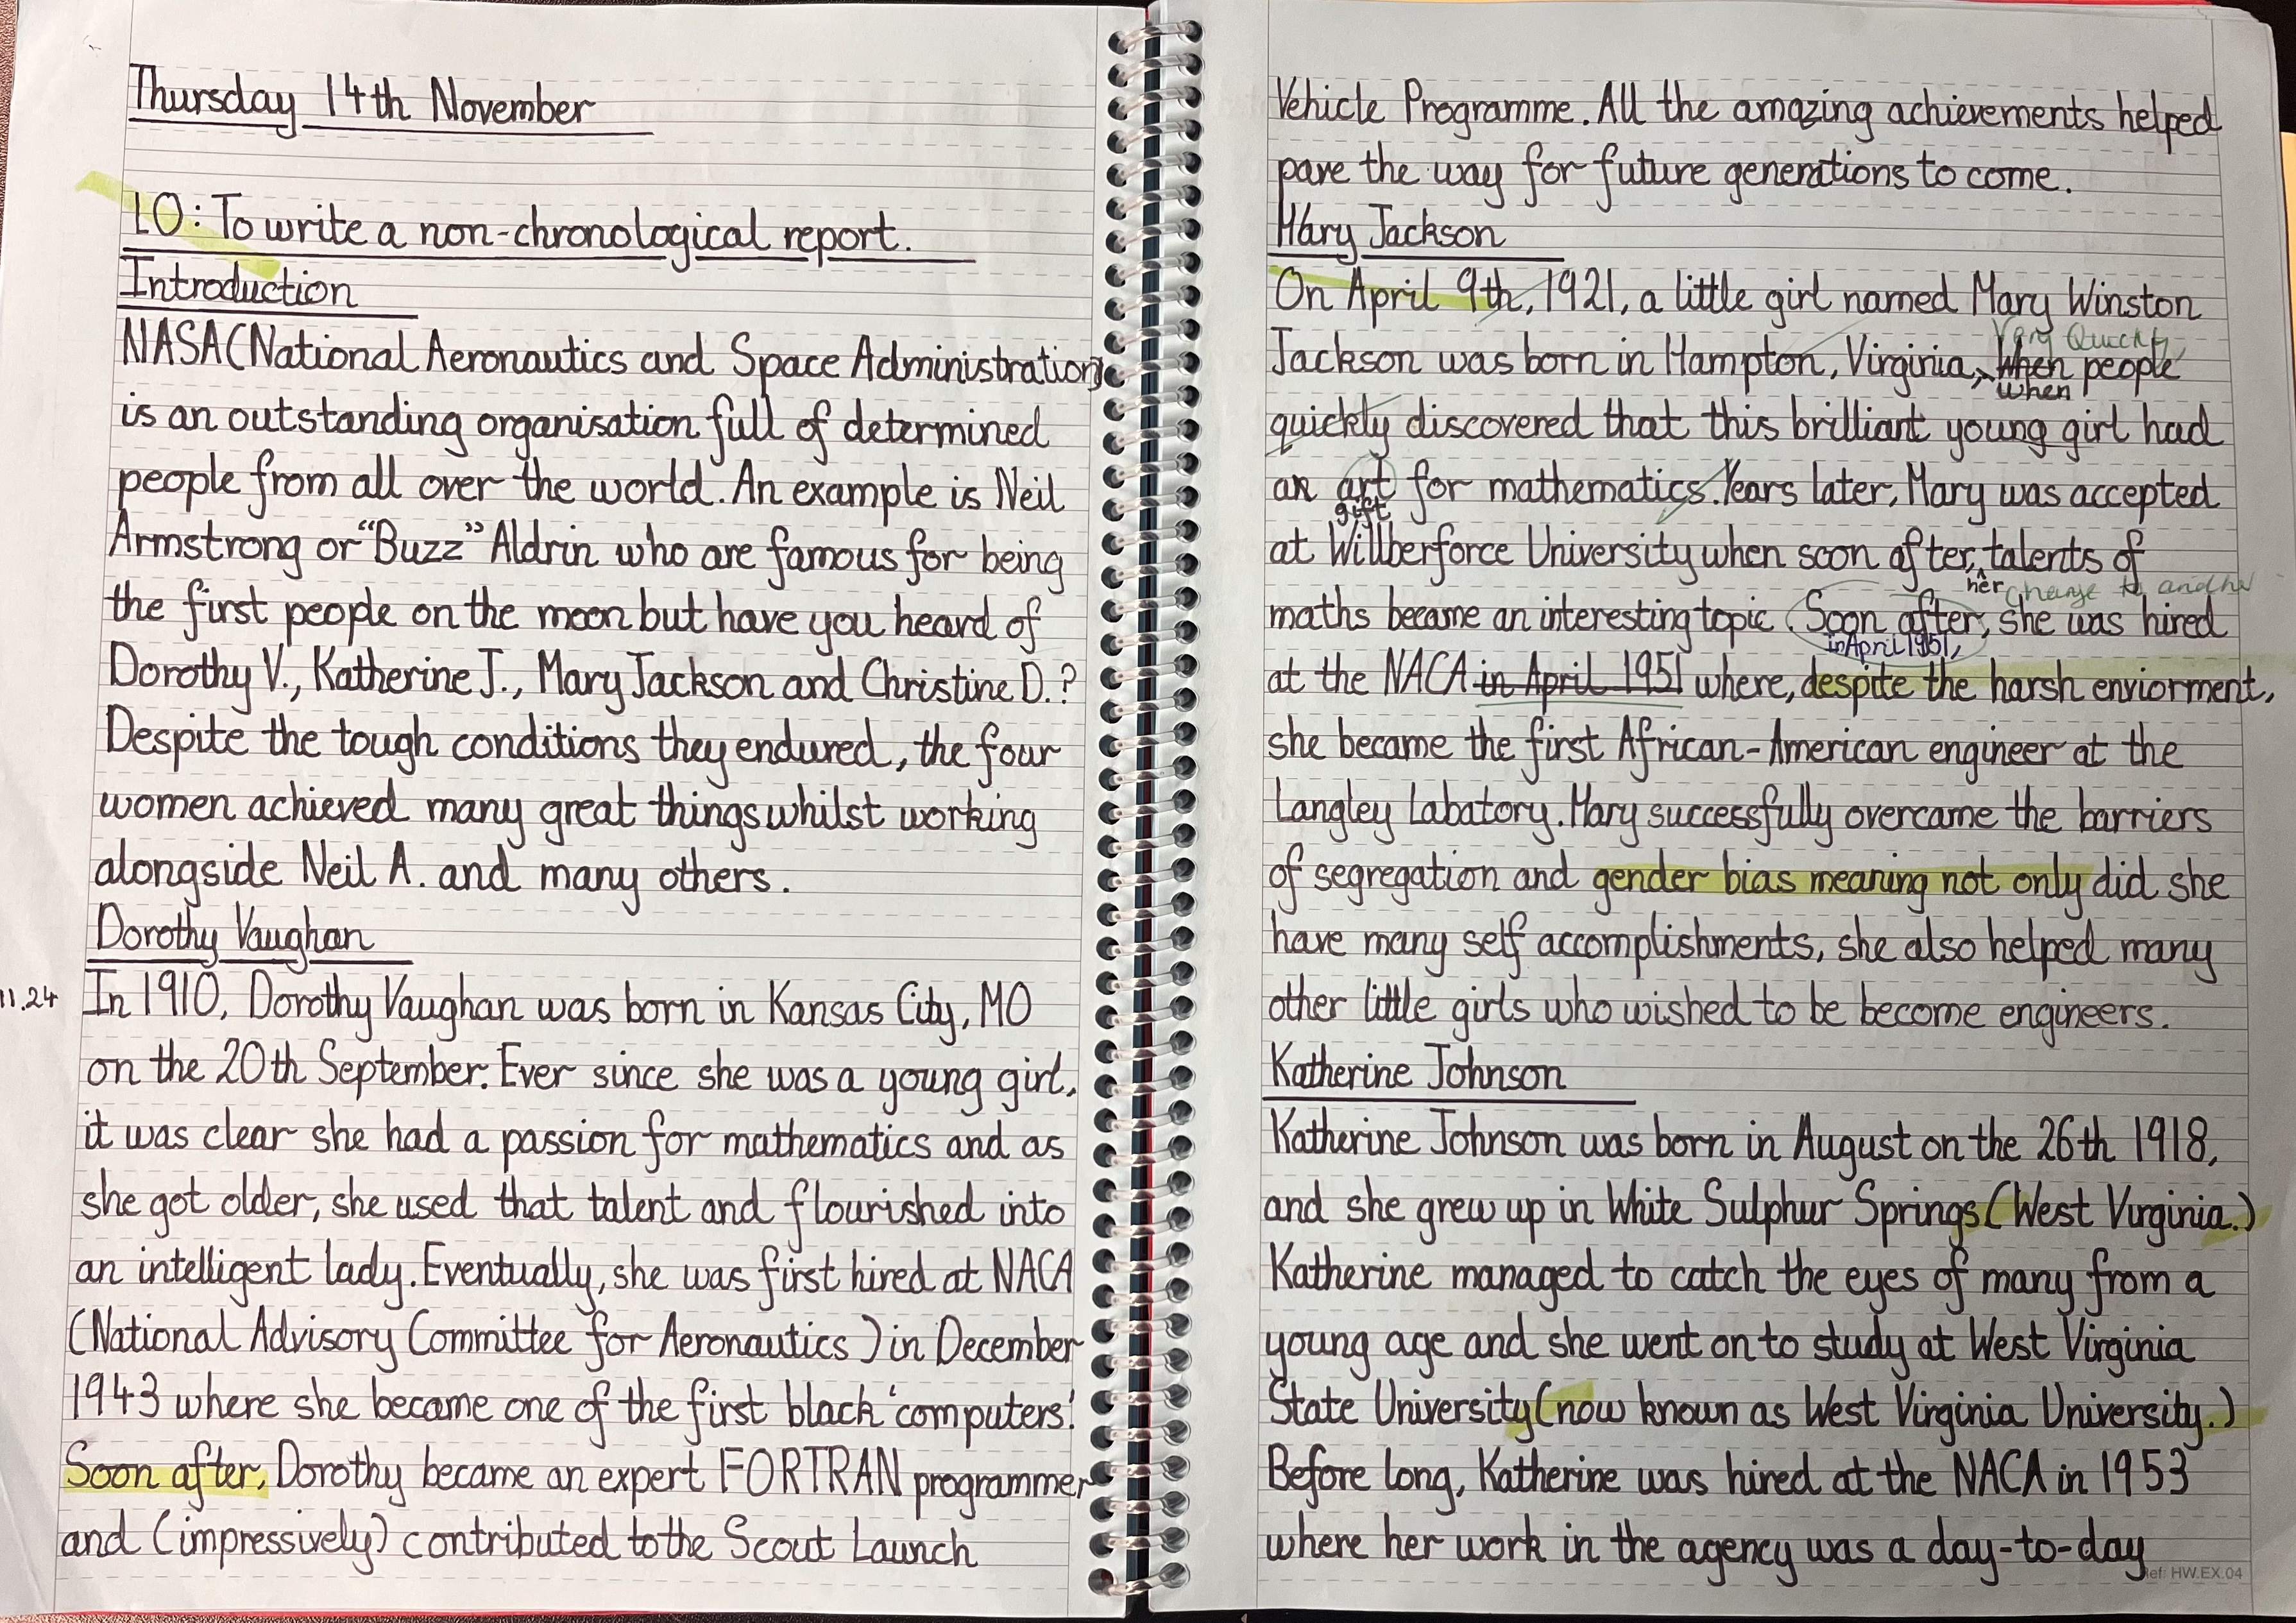 Thursday 14th November
LO: To write a non-chronological report.
Introduction
NASA (National Aeronautics and Space Administration)
is an outstanding organisation full of determined
people from all over the world. An example is Neil
Armstrong or “Buzz” Aldrin who are famous for being
the first people on the moon but have you heard of
Dorothy V., Katherine J., Mary Jackson and Christine D.?
Despite the tough conditions they endured, the four
women achieved many great things whilst working
alongside Neil A. and many others.
Dorothy Vaughan
11.24 In 1910, Dorothy Vaughan was born in Kansas City, MO
on the 20th September. Ever since she was a young girl,
it was clear she had a passion for mathematics and as
she got older, she used that talent and flourished into
an intelligent lady. Eventually, she was first hired at NACA
(National Advisory Committee for Aeronautics) in December
1943 where she became one of the first black ‘computers’.
Soon after, Dorothy became an expert FORTRAN programmer
and (impressively) contributed to the Scout Launch
Vehicle Programme. All the amazing achievements helped
pave the way for future generations to come.
Mary Jackson
On April 9th, 1921, a little girl named Mary Winston
Very Quickly
Jackson was born in Hampton, Virginia, When people
when
quickly discovered that this brilliant young girl had
an art for mathematics. Years later, Mary was accepted
gift
at Willberforce University when soon after, talents of
her change to another
maths became an interesting topic. Soon after, she was hired
in April 1951,
at the NACA in April 1951 where, despite the harsh enviorment,
she became the first African-American engineer at the
Langley Labatory. Mary successfully overcame the barriers
of segregation and gender bias meaning not only did she
have many self accomplishments, she also helped many
other little girls who wished to be become engineers.
Katherine Johnson
Katherine Johnson was born in August on the 26th 1918,
and she grew up in White Sulphur Springs (West Virginia.)
Katherine managed to catch the eyes of many from a
young age and she went on to study at West Virginia
State University (now known as West Virginia University.)
Before long, Katherine was hired at the NACA in 1953
where her work in the agency was a day-to-day
Ref: HW.EX.04